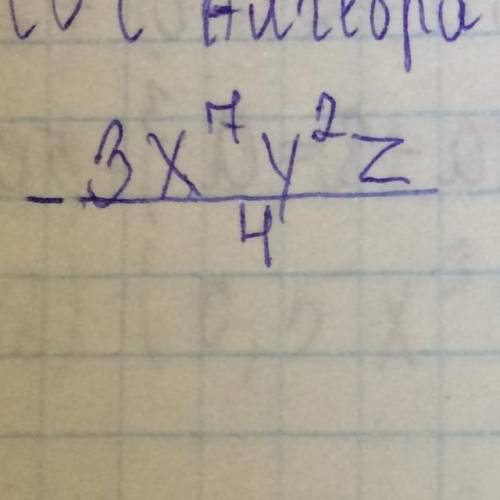 Алгебра
- 3x⁷y²z
4